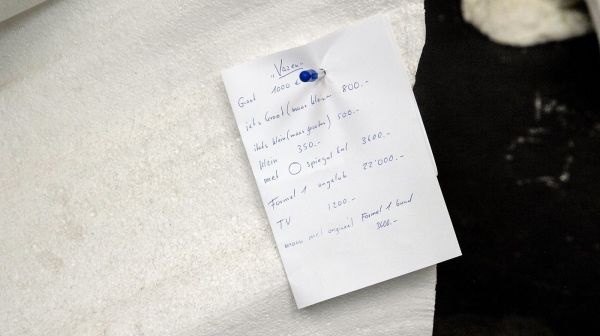 "Vazen"
Groot 1000 €
iets Groot (maar klein 800.-
iets klein (maar groter) 500.-
klein 350.-
met spiegel bal 3600.-
Formel 1 ongeluk 22'000.-
TV 1200.-
mann met original Formel 1 band
3600.-